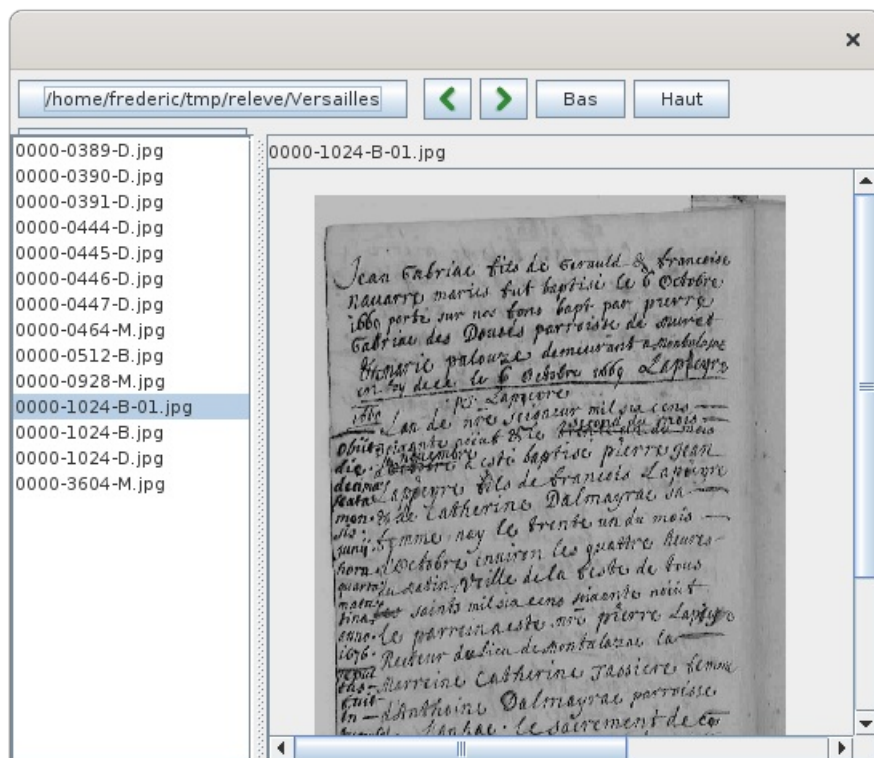 /home/frederic/tmp/releve/Versailles
Bas
Haut
0000-0389-D.jpg
0000-0390-D.jpg
0000-0391-D.jpg
0000-0444-D.jpg
0000-0445-D.jpg
0000-0446-D.jpg
0000-0447-D.jpg
0000-0464-M.jpg
0000-0512-B.jpg
0000-0928-M.jpg
0000-1024-B-01.jpg
0000-1024-B.jpg
0000-1024-D.jpg
0000-3604-M.jpg
0000-1024-B-01.jpg
Jean Gabriac fils de Gerauld & francoise
nauarre maries fut baptisé le 6 Octobre
1669 porté sur nos fons bapt par pierre
Gabriac des Douzés parroisse de muret
& marie palouze demeurant a
en foy de ce le 6 Octobre 1669 Lapeyre
Lapeyre
1669 Lan de nre seigneur mil six cens
soixante neuf & le second du mois
a esté baptisé pierre jean
Lapeyre fils de francois Lapeyre
& de Catherine Dalmayrac sa
femme nay le trente un du mois
d'Octobre enuiron les quattre heures
du matin, veille de la feste de tous
les saints mil six cens soixante neuf
le parrein a esté nre pierre Lapeyre
Recteur du lieu de Montalazac la
Marreine Catherine Jassiere femme
d'Anthoine Dalmayrac parroisse
le sacrement de
obiit
die
decima
sexta
men-
sis
junii
hora
quarta
matu-
tina
anno
1676